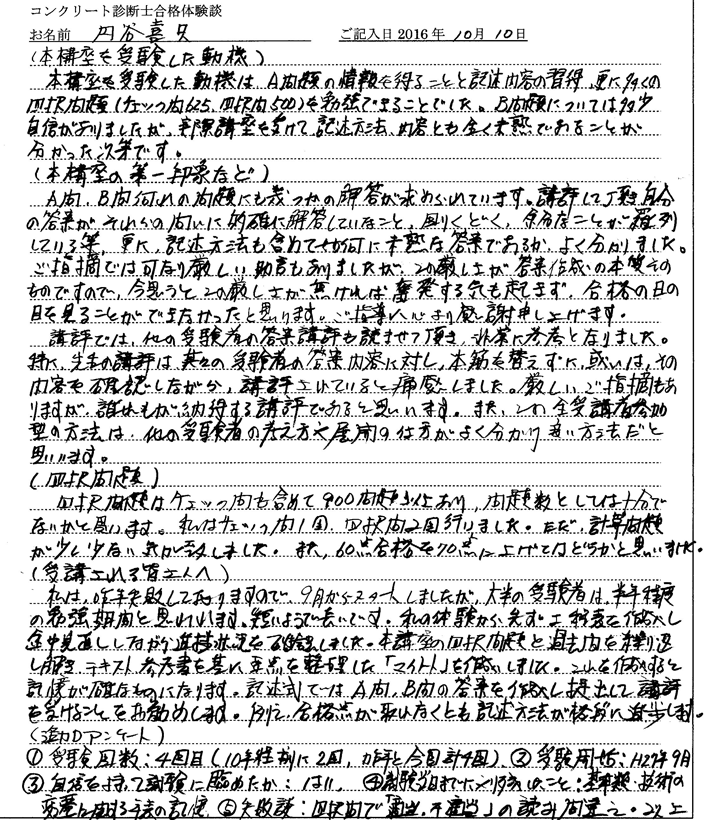 コンクリート診断士合格体験談
お名前 円谷喜久 ご記入日2016年10月10日
(本講座を受験した動機)
本講座を受験した動機は、A問題の情報を得ることと記述内容の習得、更に多くの
四択問題(チェック問625、四択問500)を勉強できることでした。B問題については多少
自信がありましたが、利講座を受けて、記述方法、内容とも全く未熟であることが
分かった次第です。
(本講座の第一印象など)
A問、B問何れの問題にも幾つかの解答が求められています。講評して頂き自分
の答案が、それらの問いに的確に解答していなこと、回りくどく、余分なことが羅列
している等、更に、記述方法も含めて如何に未熟な答案であるか、よく分かりました。
ご指摘では可なり厳しい助言もありましたが、この厳しさが答案作成の本質その
ものですので、今思うとこの厳しさが無ければ奮発する気も起きず、合格の日の
目を見ることができなかったと思います。ご指導心より感謝申し上げます。
講評では、他の受験者の答案講評も読ませて頂き、非常に参考となりました。
特に、先生の講評は、其々の受験者の答案内容に対し、本筋を替えずに、或いは、その
内容を確認しながら、講評されていると痛感しました。厳しいご指摘もあ
りますが、誰れもが納得する講評であると思います。また、この全受講者参加
型の方法は、他の受験者の考え方や展開の仕方がよく分かり良い方法だと
思います。
(四択問題)
四択問題はチェック問も含めて900問題以上あり、問題数としては十分で
ないかと思います。私はチェック問1回、四択問2回行いました。ただ、計算問題
が少し少ない気が致しました。また、60点合格を70点に上げてはどうかと思いました。
(受講される皆さんへ)
私は、昨年失敗しておりますので、9月からスタートしましたが、大半の受験者は、半年程度
の勉強期間と思われます。短いようで長いです。私の体験から、先ず工程表を作成し
途中見直ししながら進捗状況を確認しました。本講座の四択問題と過去問を繰り返
し解き、テキスト、参考書を基に要点を整理した「マイノート」を作成しました。これを作成すると
記憶が確なものになります。記述式では、A問、B問の答案を作成し提出して、講評
を受けることをお勧めします。例え、合格点が取れなくとも記述方法が格段に進歩します。
(追加アンケート)
①受験回数:4回目(10年程前に2回、昨年と今回計4回) ②受験開始:H27年9月
③自信を持って試験に臨めたか:はい ④試験当日までにやり残したこと:基準類・技術の
変遷に関する年表の記憶 ⑤失敗談:四択問で「適当、不適当」の読み間違え・以上